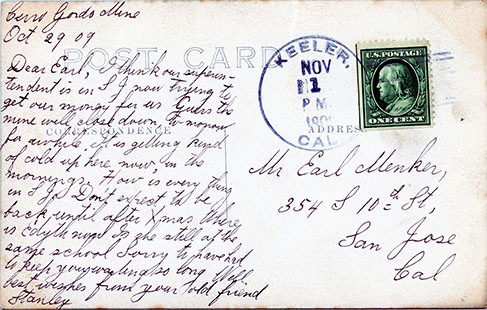 Cerro Gordo Mine
Oct 29 09
POST CARD
Dear Earl, I think our superin-
tendent is in S J now trying to
get our money for us Guess the
mine well close down to-morrow
for awhile. It is getting kind
of cold up here now, in the
mornings. How is every thing
in S J. Don't expect to be
back until after Xmas. Where
is Is she still at the
same school Sorry to have had
to keep you waiting so long Well
best wishes from your old friend
Stanley
CORRESPONDENCE
ADDRESS
KEELER,
NOV
1
P M.
190
CAL.
U.S. POSTAGE
ONE CENT
Mr Earl Menker,
354 S 10th St,
San Jose
Cal